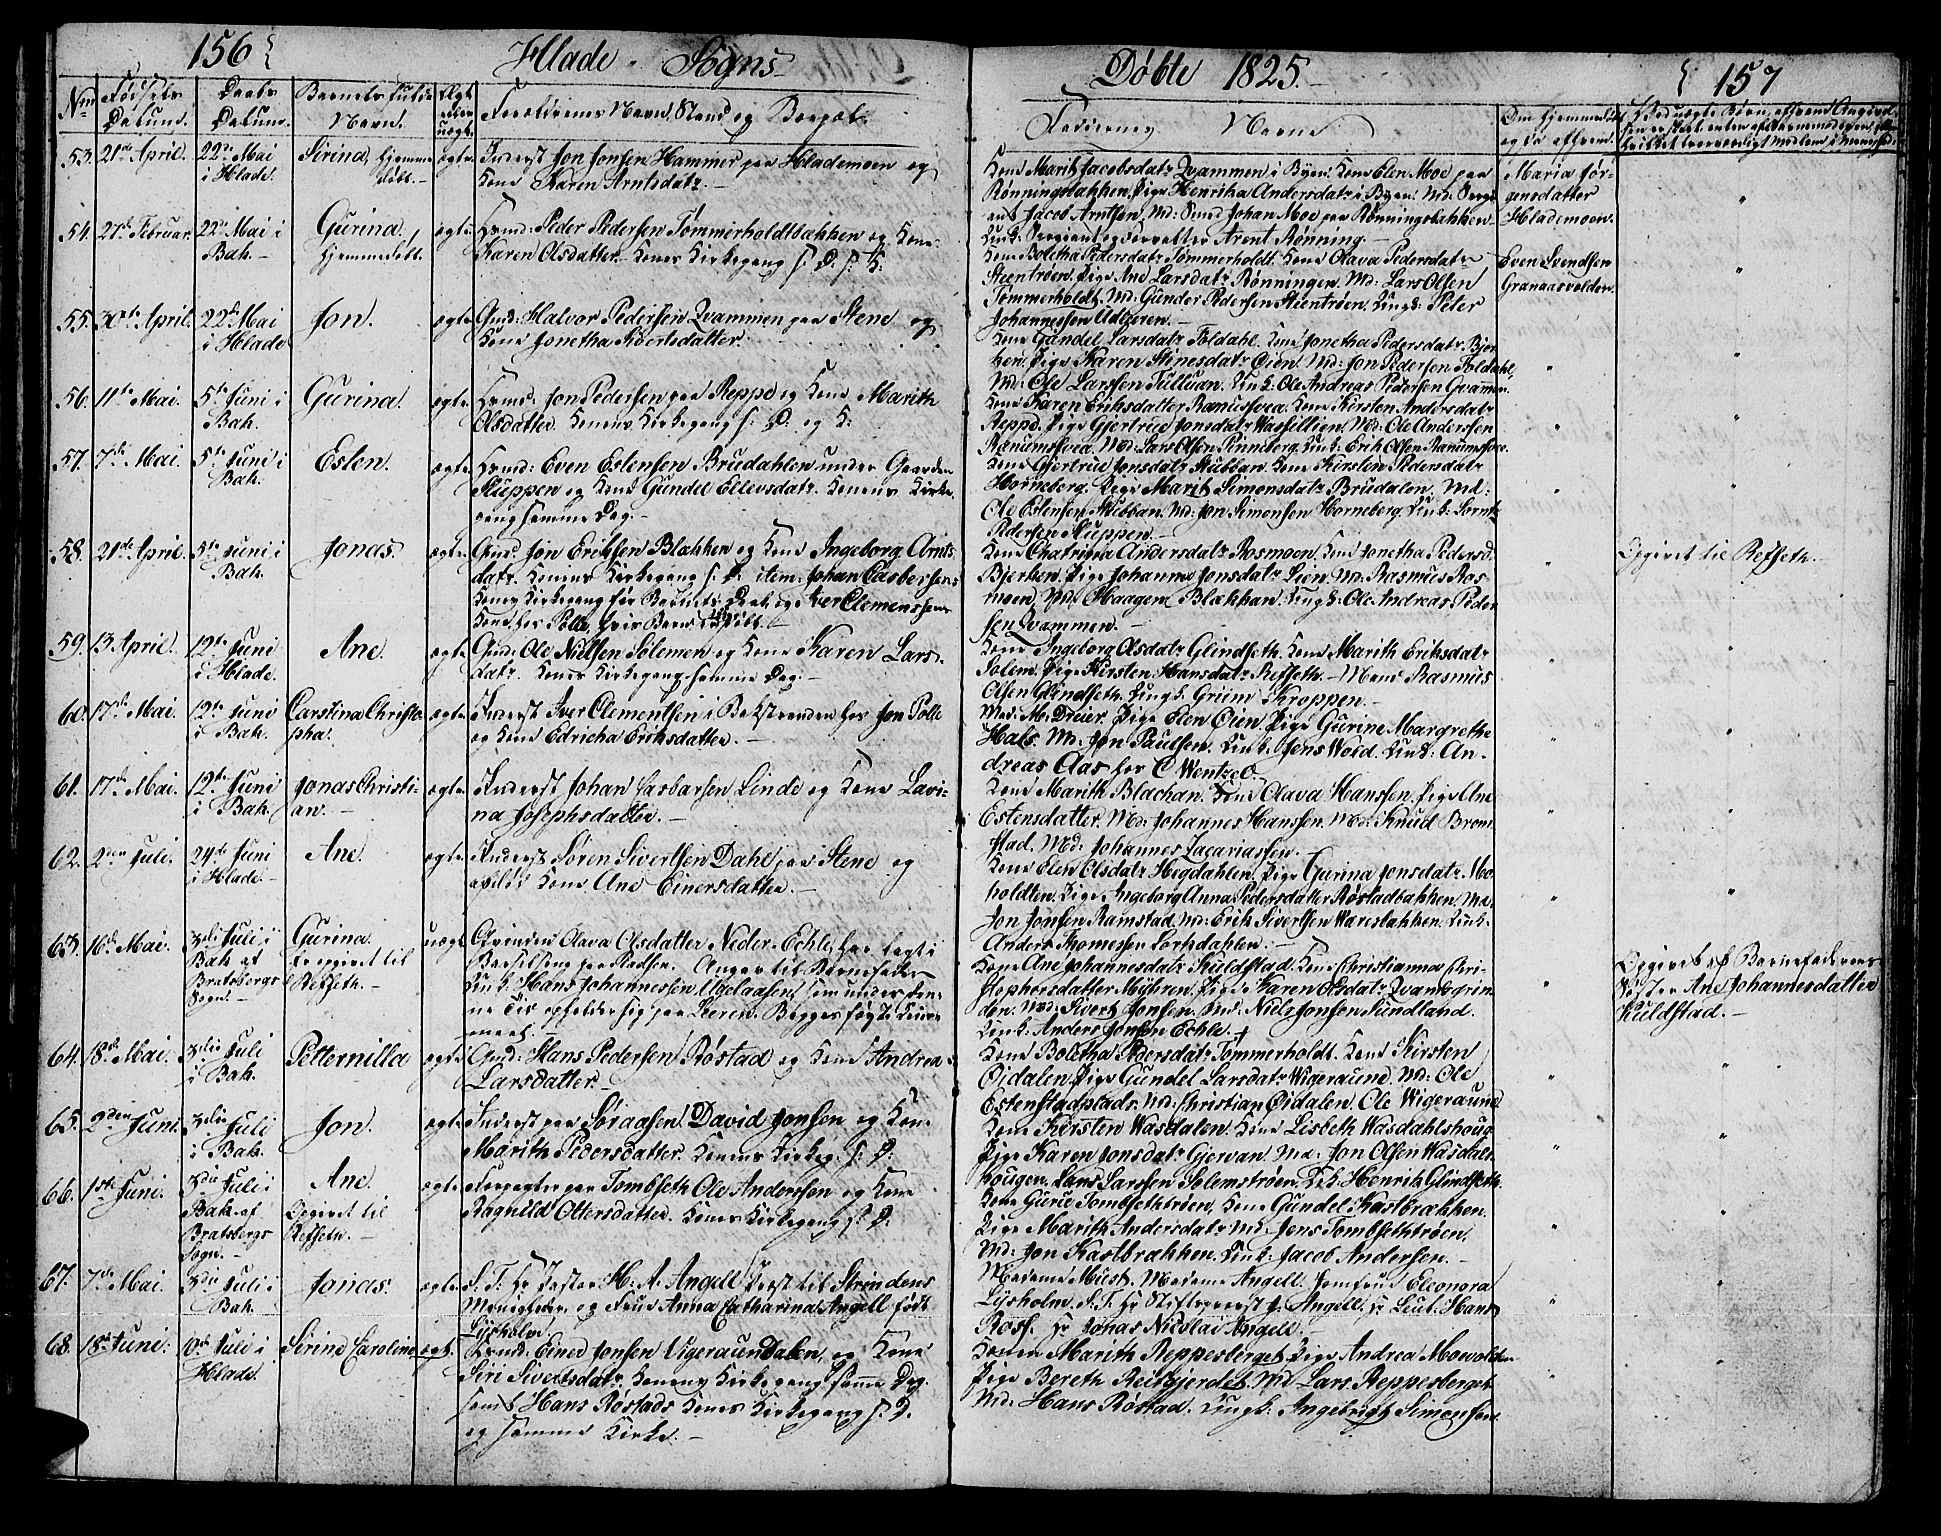 156
Hlade Sogns
Døbte 1825.
157
Nm
Fødsels Datum.
Daabs Datum.
Barnets fulde Navn.
Ægte eller uægte
Forældrenes Navn, Stand og Boepæl.
Faddernes Navne
Om hjemmedøbt og da af hvem.
53. 21de April. 22de Mai i Hlade. Sirina hjemmedøbt. ægte. Inderst Jon Jonsen Hammer paa Hlademoen og
Kone Karen Arntsdatr.
Kone Marit Jacobsdatr Qvammen i Byen. Kone Elen Moe paa
Rønningsbakken. Pige Henrika Andersdatr i Byen. Md: Sergi-
ant Jacob Arntsen. Md: Smed Johan Moe paa Rønningsbakken.
Ungk: Sergiant og Forvalter Arent Rønning.
Maria Jør-
gensdatter
Hlademoen.
54. 27de Februar. 22de Mai i Bak. Gurina, hjemmedøbt. ægte. Huusmd: Peder Pedersen Tømmerholdtbakken og Kone
Karen Olsdatter. Konens Kirkegang s: D: s: K:
Kone Boletha Pedersdatr Tømmerholdt. Kone Olava Pedersdatr
Steentrøen. Pige Ane Larsdatr Rønningen. Md. Lars Olsen
Tømmerholdt. Md: Gunder Pedersen Stientrøen. Ungk: Peter
Johannessen Udtzeren.
Even Svendsen
Granaasvolden.
55. 30te April. 22de Mai i Hlade Jon. ægte. Gmd: Halvor Pedersen Qvammen paa Stene og
Kone Jonetha Siversdatter.
Kone Gundel Larsdatr Foldahl. Kone Jonetha Pedersdatr Bjer-
ken. Pige Karen Stinesdatr Øien. Md: Jon Pedersen Foldahl,
Md: Ole Larssen Tulluan. Ungk. Ole Andreas Pedersen Qvammen.
56. 11te Mai. 5te Juni i Bak. Gurina. ægte. Huusmd: Jon Pedersen paa Reppe og Kone Marith
Olsdatter. Konens Kirkegang s: D: og K:
Kone Karen Eriksdatter Ranumsvea. Kone Kirsten Andersdatr
Reppe. Pige Gjertrue Jonsdatr Vasfillien. Md: Ole Anderssen
Ranumsvea. Md: Lars Olsen Pinneberg. Ungk: Erik Olsen Ranumsvea.
57. 7de Mai. 5te Juni i Bak. Eslen. ægte. Huusmd: Even Estensen Brudahlen under Gaarden
Sluppen og Kone Gundel Ellevsdatr. Konens Kirke-
gang samme Dag.
Kone Gjertrue Jonsdatr Stubban. Kone Kirsten Pedersdatr
Horneberg. Pige Marit Simonsdatr Brudalen. Md:
Ole Estensen Stubban. Md: Jon Simonsen Horneberg. Ungk: Lorntz
Pedersen Sluppen.
58. 21de April. 5te Juni i Bak. Jonas. ægte. Gmd: Jon Eriksen Blækken og Kone Ingeborg Arnts-
datr. Konens Kirkegang s: D: item: Johan Casbersens
Kones Kirkegang før Barnets Daab, og Iver Clemensens
Kone hos Polle, hvis Barn
Kone Chatrina Andersdatr Rosmoen. Kone Jonetha Pedersd.
Bjerken. Pige Johanna Jonsdatr Lien. Md: Rasmus Ros-
moen. Md: Haagen Blækkan. Ungk: Ole Andreas Peder-
sen Qvammen.
Opgivet til Refseth.
59. 13 April. 12te Juni i Hlade. Ane. ægte. Gmd: Ole Nielsen Solemen og Kone Karen Lars-
datr. Kones Kirkegang samme Dag.
Kone Ingeborg Olsdatr Glindseth. Kone Marith Eriksdatr
Solem. Pige Kirsten Hansdatr Refseth. Mand Rasmus
Olsen Glindseth. Ungk: Grüm Kroppen.
60. 17de Mai. 12te Juni i Bak. Carstina Christopha. ægte. Inderst Iver Clementsen i Bakstranden hos Jon Polle
og Kone Edricha Eriksdatter.
Mad: M. Dreier. Pige Elen Øien. Pige Gurine Margrethe
Hals. Md: Jon Paulsen. Ungk: Jens Wold. Ungk: An-
dreas Aas hos C Wentzel.
61. 17de Mai. 12te Juni i Bak. Jonas Christian. ægte. Inderst Johan Casbarsen Linde og Kone Lavi-
na Josephsdatter.
Kone Marith Blachan. Kone Olava Hanssen. Pige Ane
Estensdatter. Md: Johannes Hanssen. Md: Knud Brom-
stad. Md: Johannes Zacariassen.
62. 2den Juli. 24de Juni i Hlade. Ane. ægte. Inderst Søren Sivertsen Dahl paa Stene og
Kone Ane Einersdatter.
Kone Elen Olsdatr Hegdahlen. Pige Gurina Jonsdatr Mo-
holdten. Pige Ingeborg Anna Pedersdatter Røstadbakken. Md:
Jon Jonsen Ramstad. Md: Erik Sivertsen Waresbakken. Ungk:
Anders Thomessen Lorkdahlen.
63. 16de Mai. 3die Juli i Bak af Bratsbergs Sogn. Gurina. Er opgivet til Refseth. uægte Qvinden Olava Olsdatter Neder-Eckle, har lagt i
Barselseng paa Stadsen. Angav til Barnefader
Ungk: Hans Johannessen Uglaasen, som under den-
ne Tid opholder sig paa Leeren. Begges
Kone Ane Johannesdatr Kuldstad. Kone Christianna Chri-
stophersdatter Myhren. Pige Karen Olsdatr Qvamsgrin-
den. Md: Sivert Jonsen. Md: Niels Jonsen Sundland.
Ungk: Anders Jonsen Eckle.
Opgivet af Barnefaderens
Søster Ane Johannesdatter
Kuldstad.
64. 18de Mai. 3die Juli i Bak. Petternilla ægte Gmd: Hans Pedersen Røstad og Kone Andrea
Larsdatter.
Kone Boletha Pedersdatr Tømmerholdt. Kone Kirsten
Øidalen. Pige Gundel Larsdatr Wigeraund. Md: Ole
Estenstadplads. Md: Christian Øidalen. Ole Wigeraund.
65. 2den Juni. 3die Juli i Bak. Jon. ægte. Inderst paa Søraasen David Jonsen og Kone
Marith Pedersdatter. Konens Kirkeg: s: D:
Kone Kirsten Wasdalen. Kone Lisbeth Wasdahlshoug
Pige Karen Jonsdatr Gjervan. Md: Jon Olsen Wasdals-
hougen. Lars Larssen Solemstrøen. Ungk: Henrik Glindseth.
66. 1ste Juni. 3die Juli i Bak af Bratsbergs Sogn. Ane. Opgivet til Refseth. ægte. Forpagter paa Tombseth Ole Anderssen og Kone
Ragnild Ottersdatter. Konens Kirkegang s: D:
Kone Guru Tombsethtrøen. Kone Gundel Kastbrækken.
Pige Marith Andersdatr. Md: Jens Tombsethtrøen.
Md: Jon Kastbrækken. Ungk: Jacob Andersen.
67. 7de Mai. 3die Juli i Bak. Jonas. ægte. S. T. Hr Pastor H. A. Angell Præst til Strindens
Menigheder og Frue Anna Catharina Angell født
Lysholm.
Madame Must. Madame Angell. Jomfrue Eleonora
Lysholm. S. T. Hr Stiftsprovst Angell. Hr Leut. Hans
Ross. Hr Jonas Nicolai Angell.
68. 18de Juni. 10de Juli i Hlade. Sirine Caroline ægte. Huusmd: Einer Jonsen Vigeraundalen og Kone
Siri Sivertsdatr. Konens Kirkegang samme Dag.
samt Hans Røstads Kones Kirkegang s: D:
og samme Kirke.
Konen Marith Reppesberget. Pige Andrea Moevolden
Pige Bereth Reitgjerdet. Md: Lars Reppesberget.
Md: Hans Røstad. Ungk: Ingebrigt Simonsen.